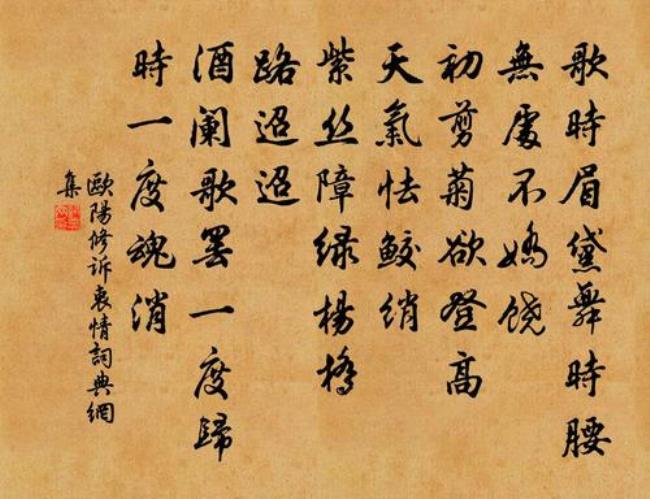 歌時眉黛舞時腰
無處不嬌饶
初剪菊欲登高
天氣怯鮫绡
紫丝障绿楊橋
路迢迢
酒阑歌罢一度歸
時一度魂消
歐陽修诉衷情詞典網
集